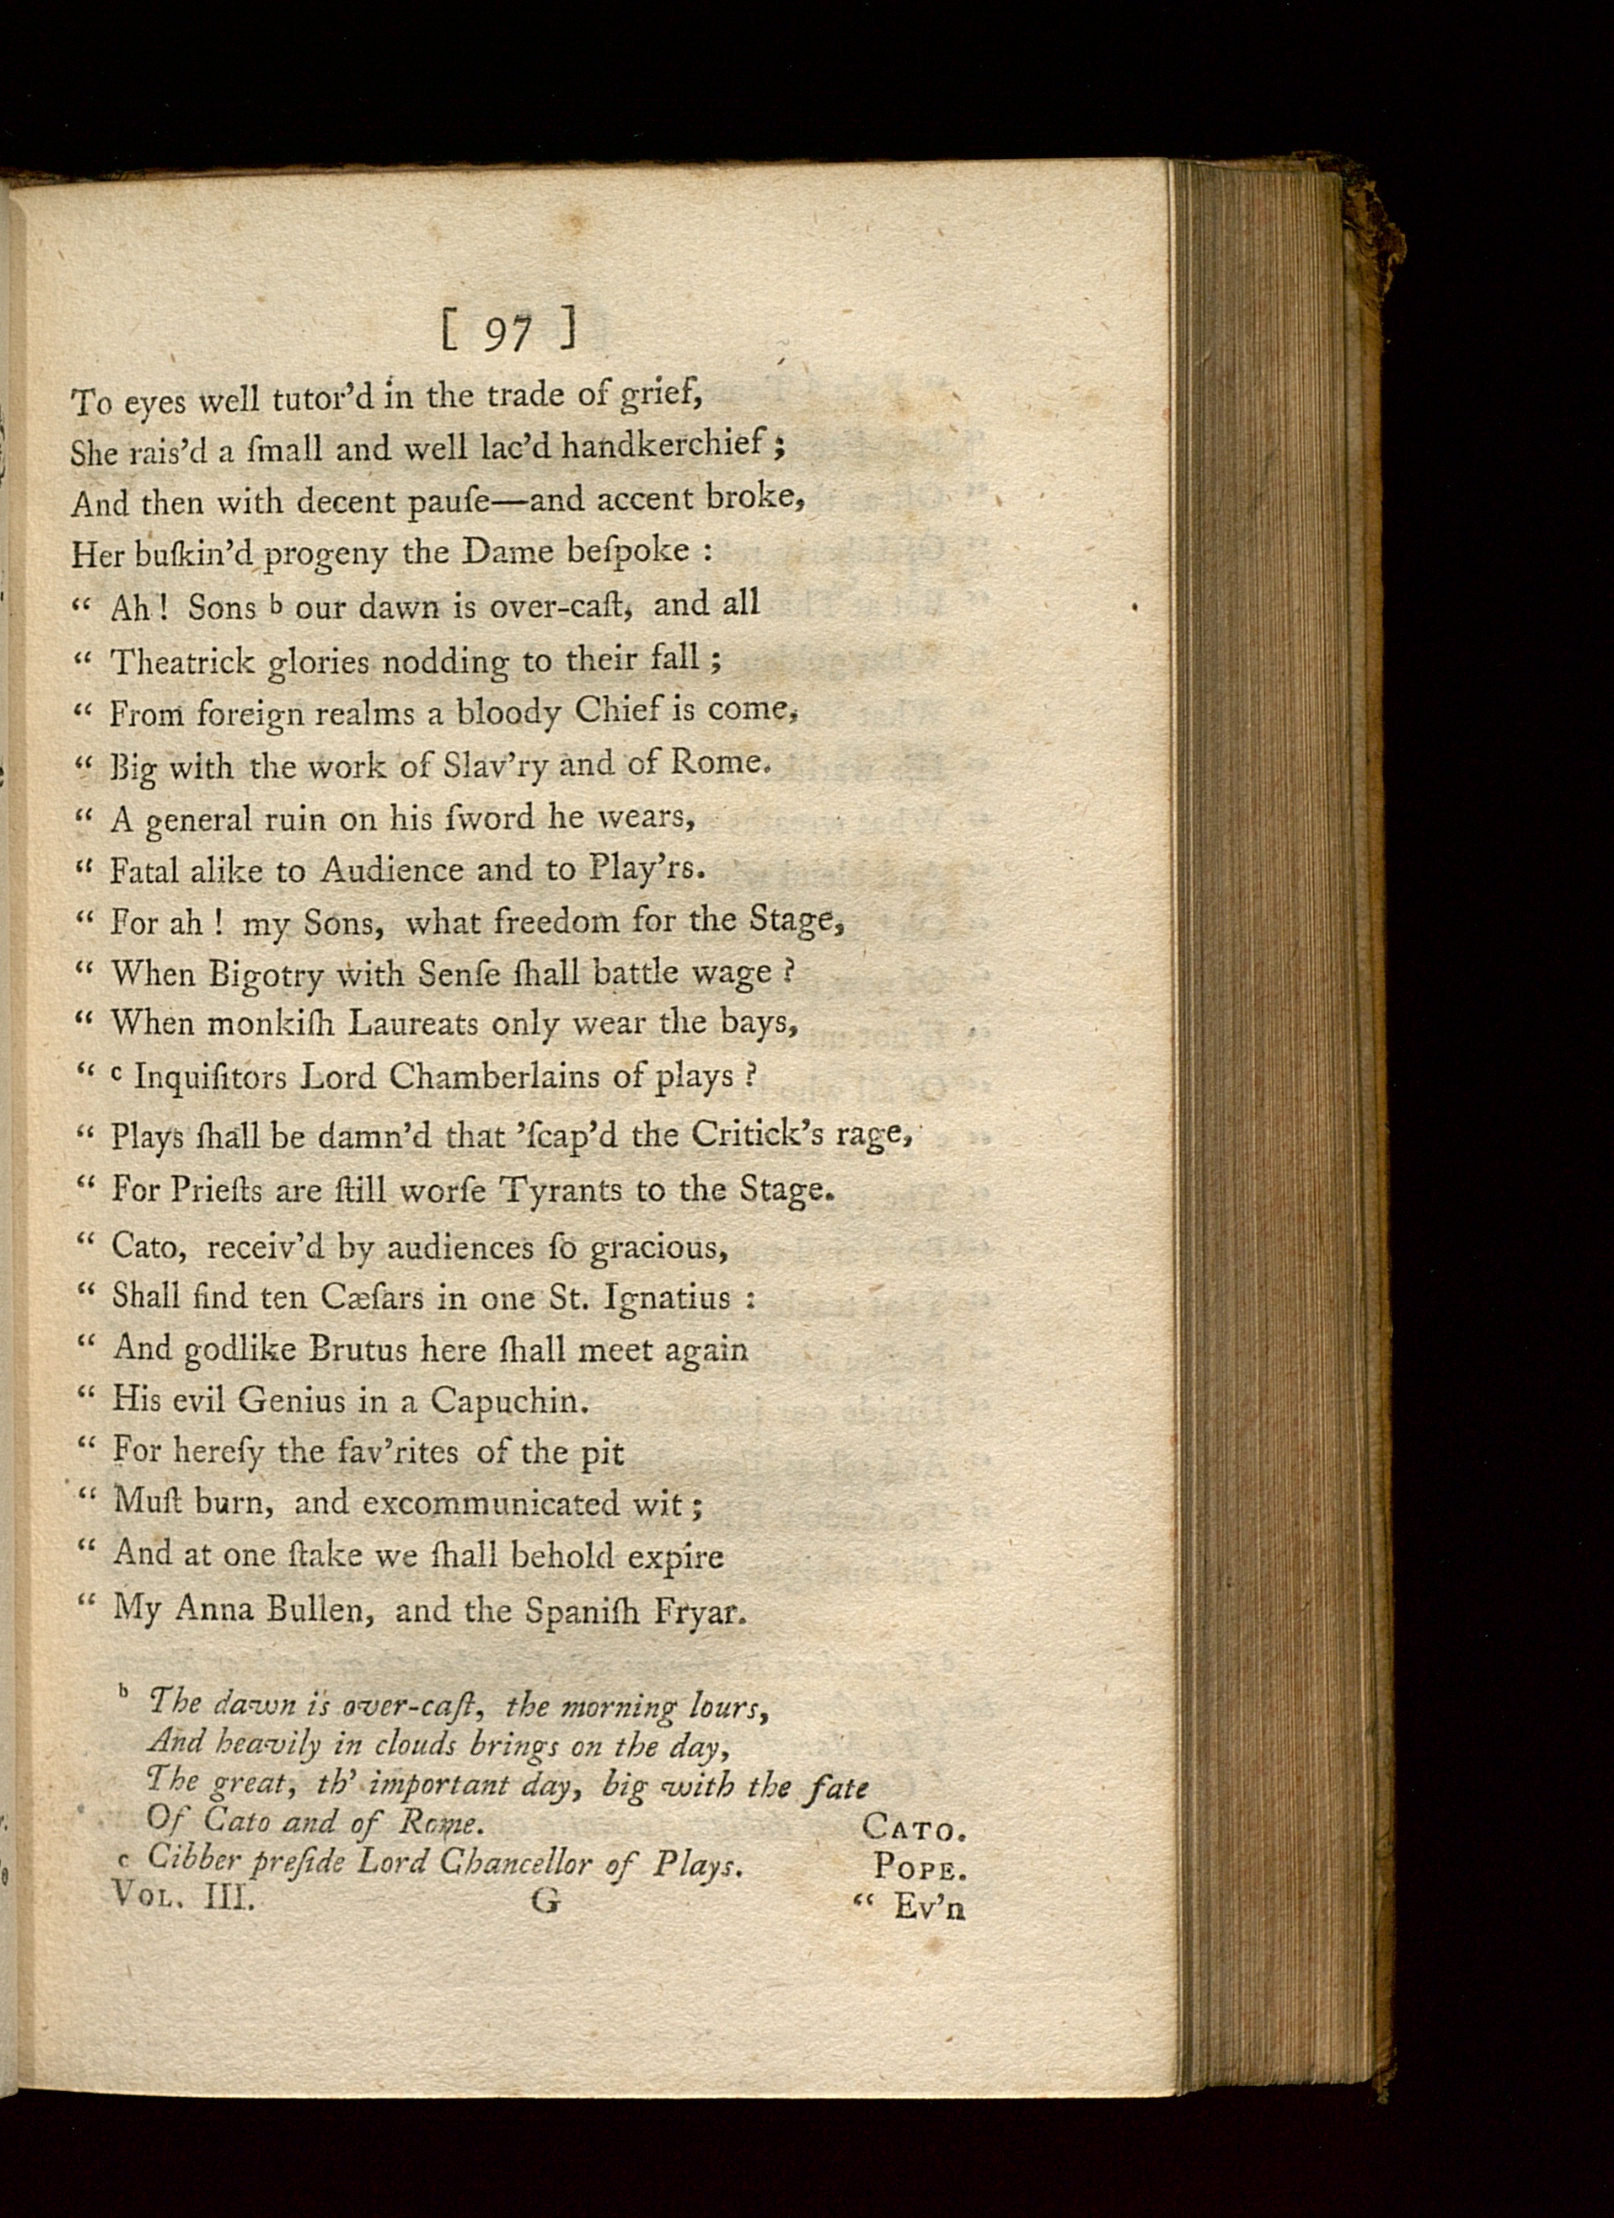 [ 97 ]
To eyes well tutor’d in the trade of grief,
She rais’d a ſmall and well lac’d handkerchief ;
And then with decent pauſe—and accent broke,
Her buſkin’d progeny the Dame beſpoke :
“ Ah ! Sons b our dawn is over-caſt, and all
“ Theatrick glories nodding to their fall ;
“ From foreign realms a bloody Chief is come,
“ Big with the work of Slav’ry and of Rome.
“ A general ruin on his ſword he wears,
“ Fatal alike to Audience and to Play’rs.
“ For ah ! my Sons, what freedom for the Stage,
“ When Bigotry with Senſe ſhall battle wage ?
“ When monkiſh Laureats only wear the bays,
“ c Inquiſitors Lord Chamberlains of plays ?
“ Plays ſhall be damn’d that ’ſcap’d the Critick’s rage,
“ For Prieſts are ſtill worſe Tyrants to the Stage.
“ Cato, receiv’d by audiences ſo gracious,
“ Shall find ten Cæſars in one St. Ignatius :
“ And godlike Brutus here ſhall meet again
“ His evil Genius in a Capuchin.
“ For hereſy the fav’rites of the pit
“ Muſt burn, and excommunicated wit ;
“ And at one ſtake we ſhall behold expire
“ My Anna Bullen, and the Spaniſh Fryar.
b The dawn is over-caſt, the morning lours,
And heavily in clouds brings on the day,
The great, th’ important day, big with the fate
Of Cato and of Rome. CATO.
c Cibber preſide Lord Chancellor of Plays. POPE.
VOL. III. G “ Ev’n